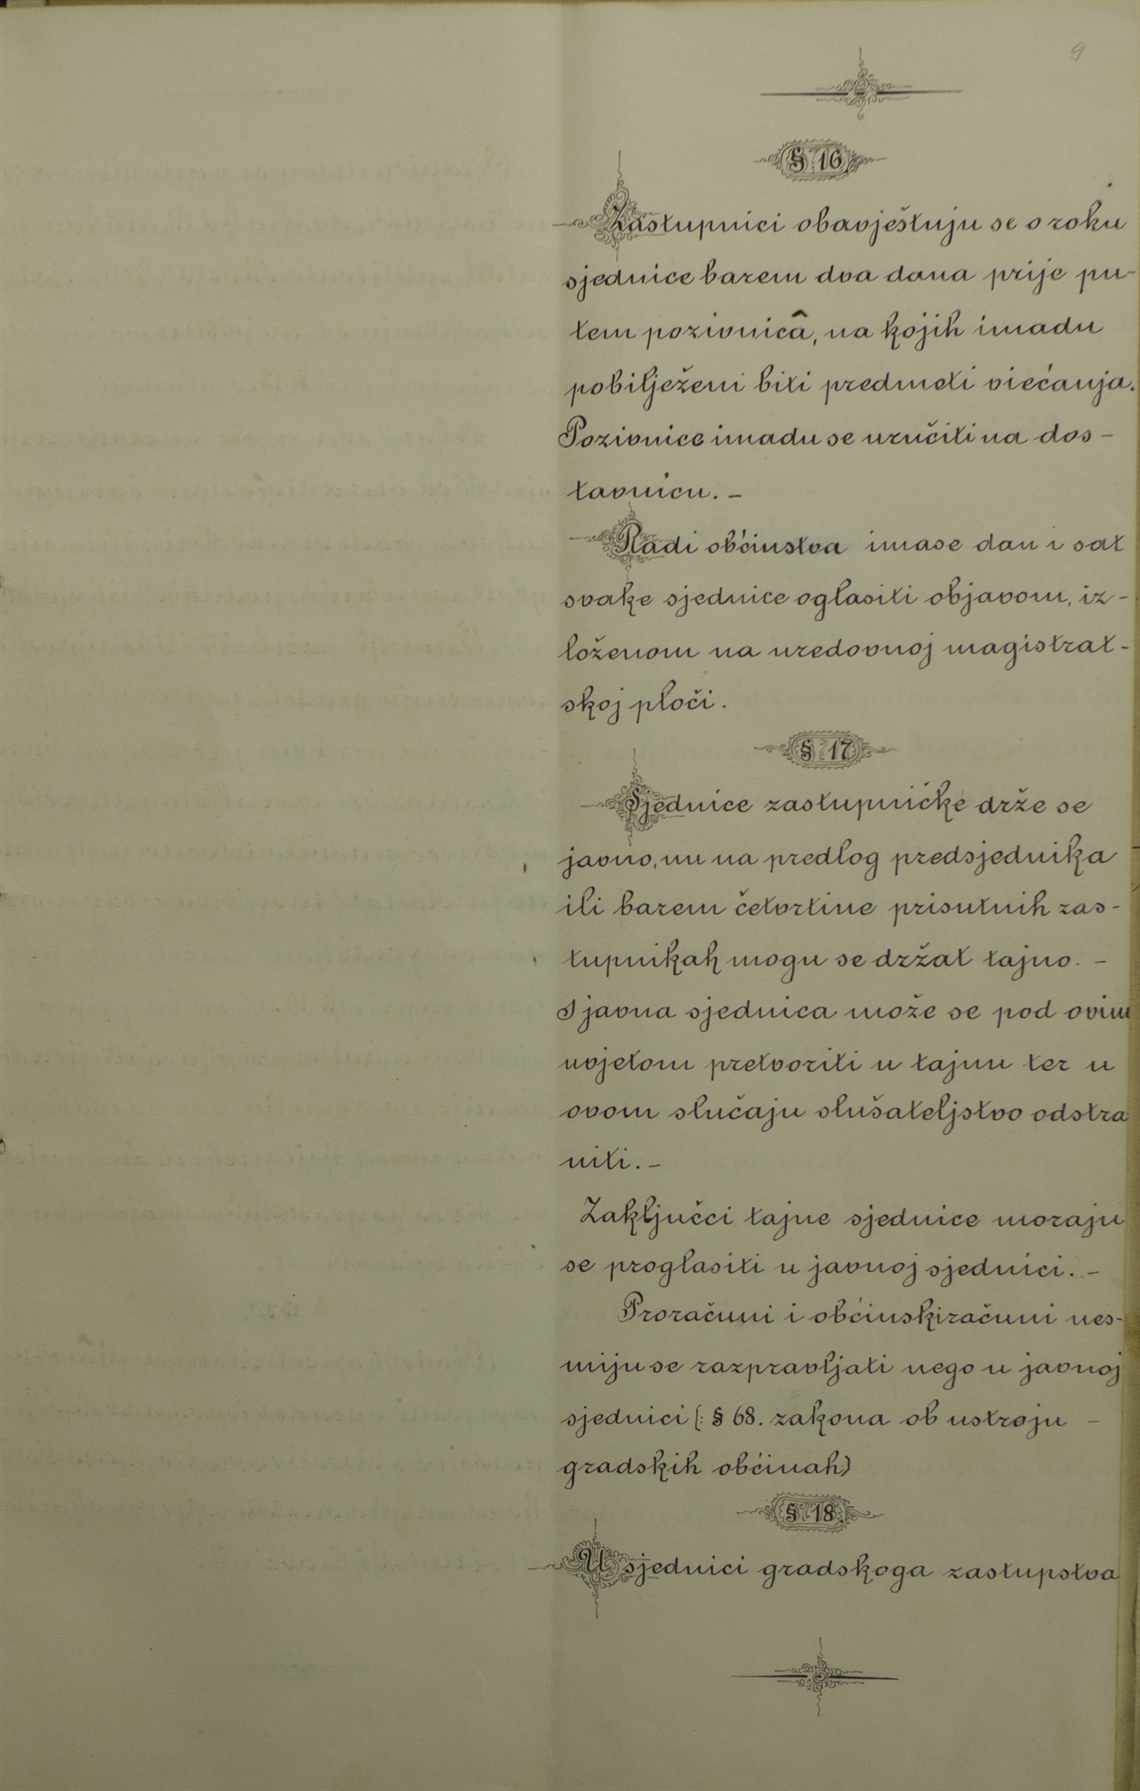 9
§ 16
Zastupnici obavještuju se o roku
sjednice barem dva dana prije pu-
tem pozivnicâ, na kojih imadu
pobilježeni biti predmeti viećanja.
Pozivnice imadu se uručiti na dos-
tavnicu. -
Radi občinstva imase dan i sat
svake sjednice oglasiti objavom, iz-
loženom na uredovnoj magistrat-
skoj ploči.
§ 17
Sjednice zastupničke drže se
javno, nu na predlog predsjednika
ili barem četvrtine prisutnih zas-
tupnikah mogu se držat tajno. -
I javna sjednica može se pod ovim
uvjetom pretvoriti u tajnu ter u
ovom slučaju slušateljstvo odstra
niti. -
Zaključci tajne sjednice moraju
se proglasiti u javnoj sjednici. -
Proračuni i občinski računi nes-
miju se razpravljati nego u javnoj
sjednici (: § 68. zakona ob ustroju -
gradskih občinah)
§ 18.
U sjednici gradskoga zastupstva